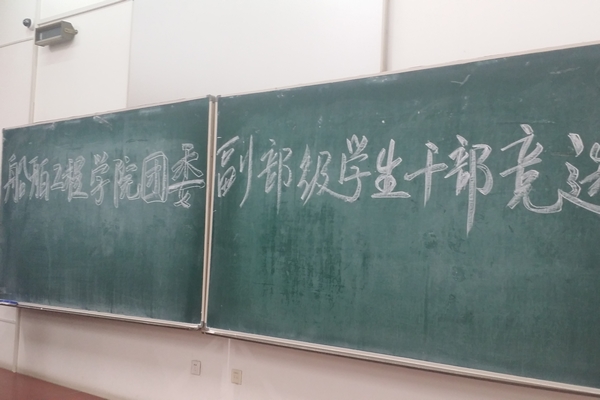 船舶工程学院团委副部级学生干部竞选